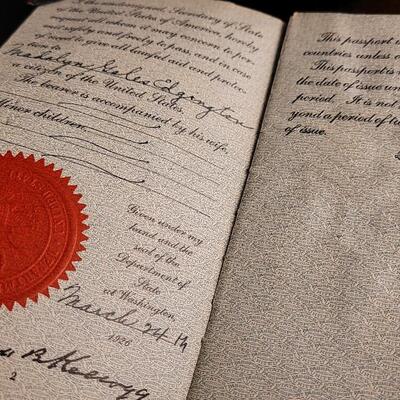 Secretary of State
States of America, hereby
request all whom it may concern to per-
safely and freely to pass, and in case
of need to give all lawful aid and protec-
tion to
Edgington
a citizen of the United States.
The bearer is accompanied by his wife,
Minor children,
Given under my
hand and the
seal of the
Department of
State
at Washington,
March 24th
1926
B Kellogg
2
This passport
countries unless
This passport is
the date of issue un
period. It is not
yond a period of tw
of issue.